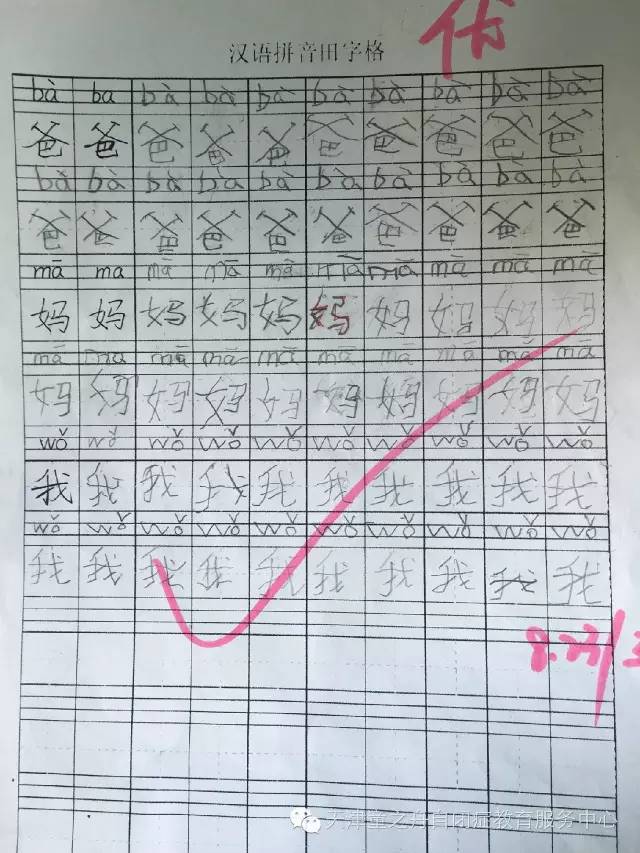 优
汉语拼音田字格
bà ba bà bà bà bà bà bà bà bà
爸 爸 爸 爸 爸 爸 爸 爸 爸 爸
bà bà bà bà bà bà bà bà bà bà
爸 爸 爸 爸 爸 爸 爸 爸 爸 爸
mā ma mā mā mā mā mā mā mā mā
妈 妈 妈 妈 妈 妈 妈 妈 妈 妈
mā ma mā mā mā mā mā mā mā mā
妈 妈 妈 妈 妈 妈 妈 妈 妈 妈
wǒ wǒ wǒ wǒ wǒ wǒ wǒ wǒ wǒ wǒ
我 我 我 我 我 我 我 我 我 我
wǒ wǒ wǒ wǒ wǒ wǒ wǒ wǒ wǒ wǒ
我 我 我 我 我 我 我 我 我 我
天津童之舟自闭症教育服务中心